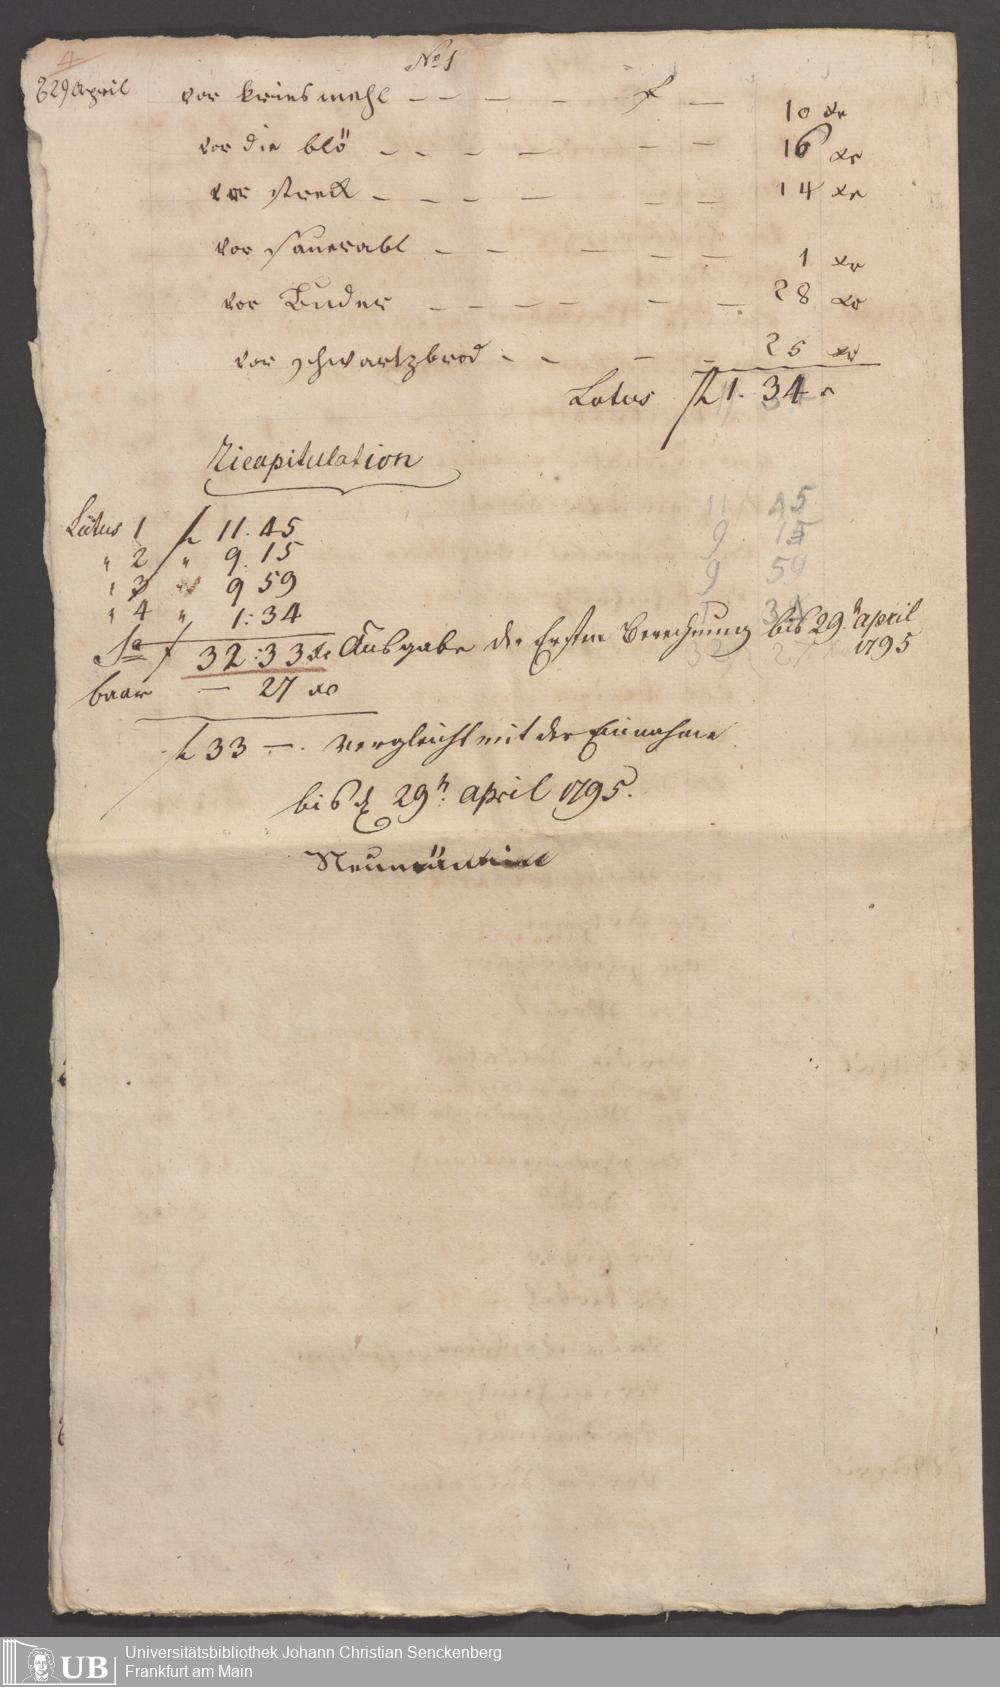 4
No 1
d 29 April vor kriesmehl — — — — f — 10 xr
vor die blö — — — — — — 16 xr
vor streck — — — — — — 14 xr
vor sauerabl — — — — — — 1 xr
vor Buder — — — — — — 28 xr
vor schwartzbrod — — — — 25 xr
Latus f 1. 34 x
Ricapitulation
Latus 1 f 11. 45
" 2 " 9. 15
" 3 " 9 59
" 4 " 1: 34
Sa f 32:33 xr Ausgabe der Ersten Berechnung bis 29.n april 1795
baar — 27 xr
f 33 — . vergleicht mit der Einnahme
bis d 29n: april 1795.
11 45
9 15
9 59
1 34
32 27
Universitätsbibliothek Johann Christian Senckenberg
Frankfurt am Main
UB